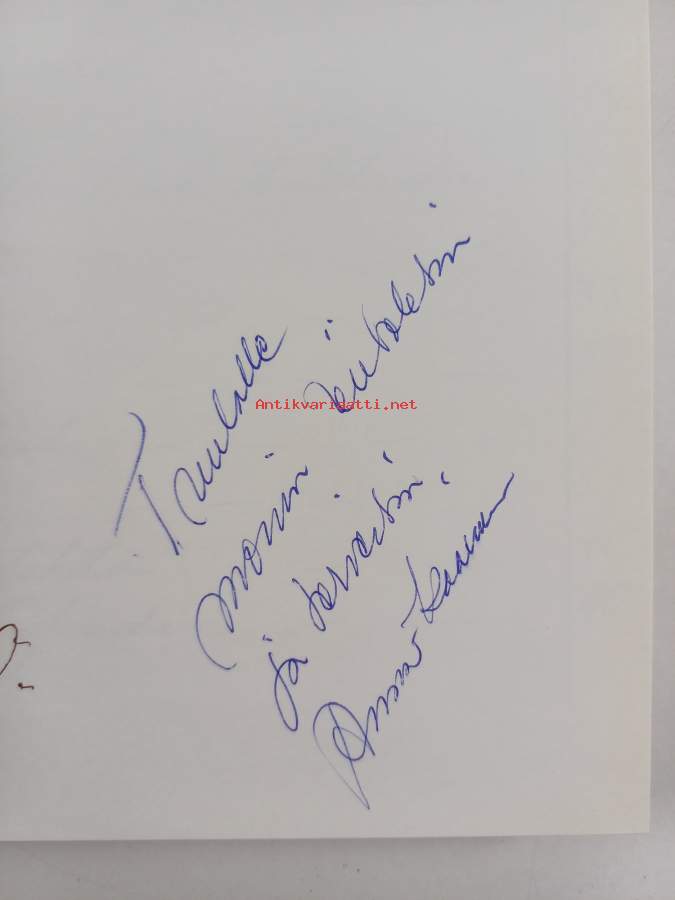 Tuulalle
monin kiitoksin
ja terveisin,
Antikvariaatti.net